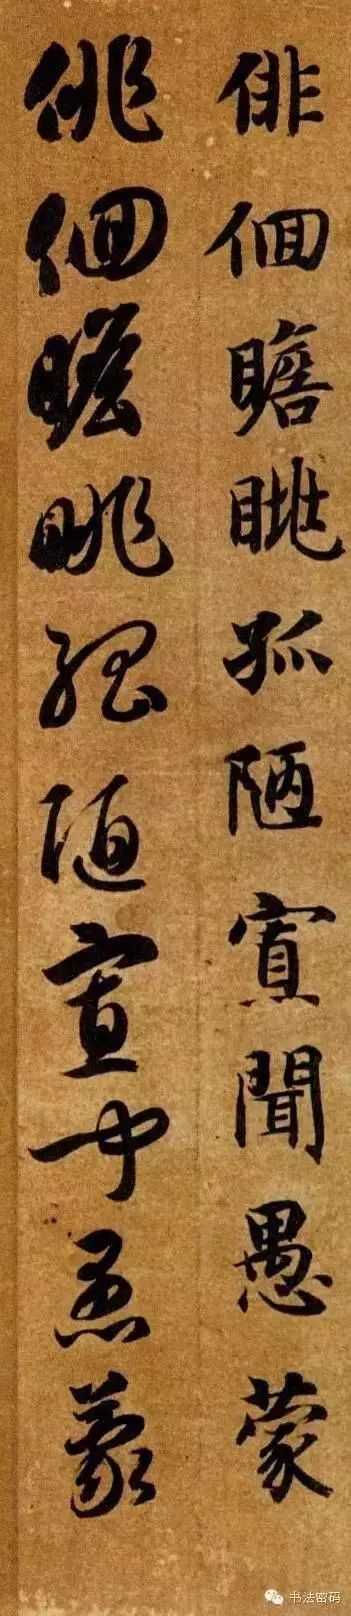 俳佪瞻眺孤陋寡聞愚蒙
俳佪瞻眺孤陋寡聞愚蒙
书法密码